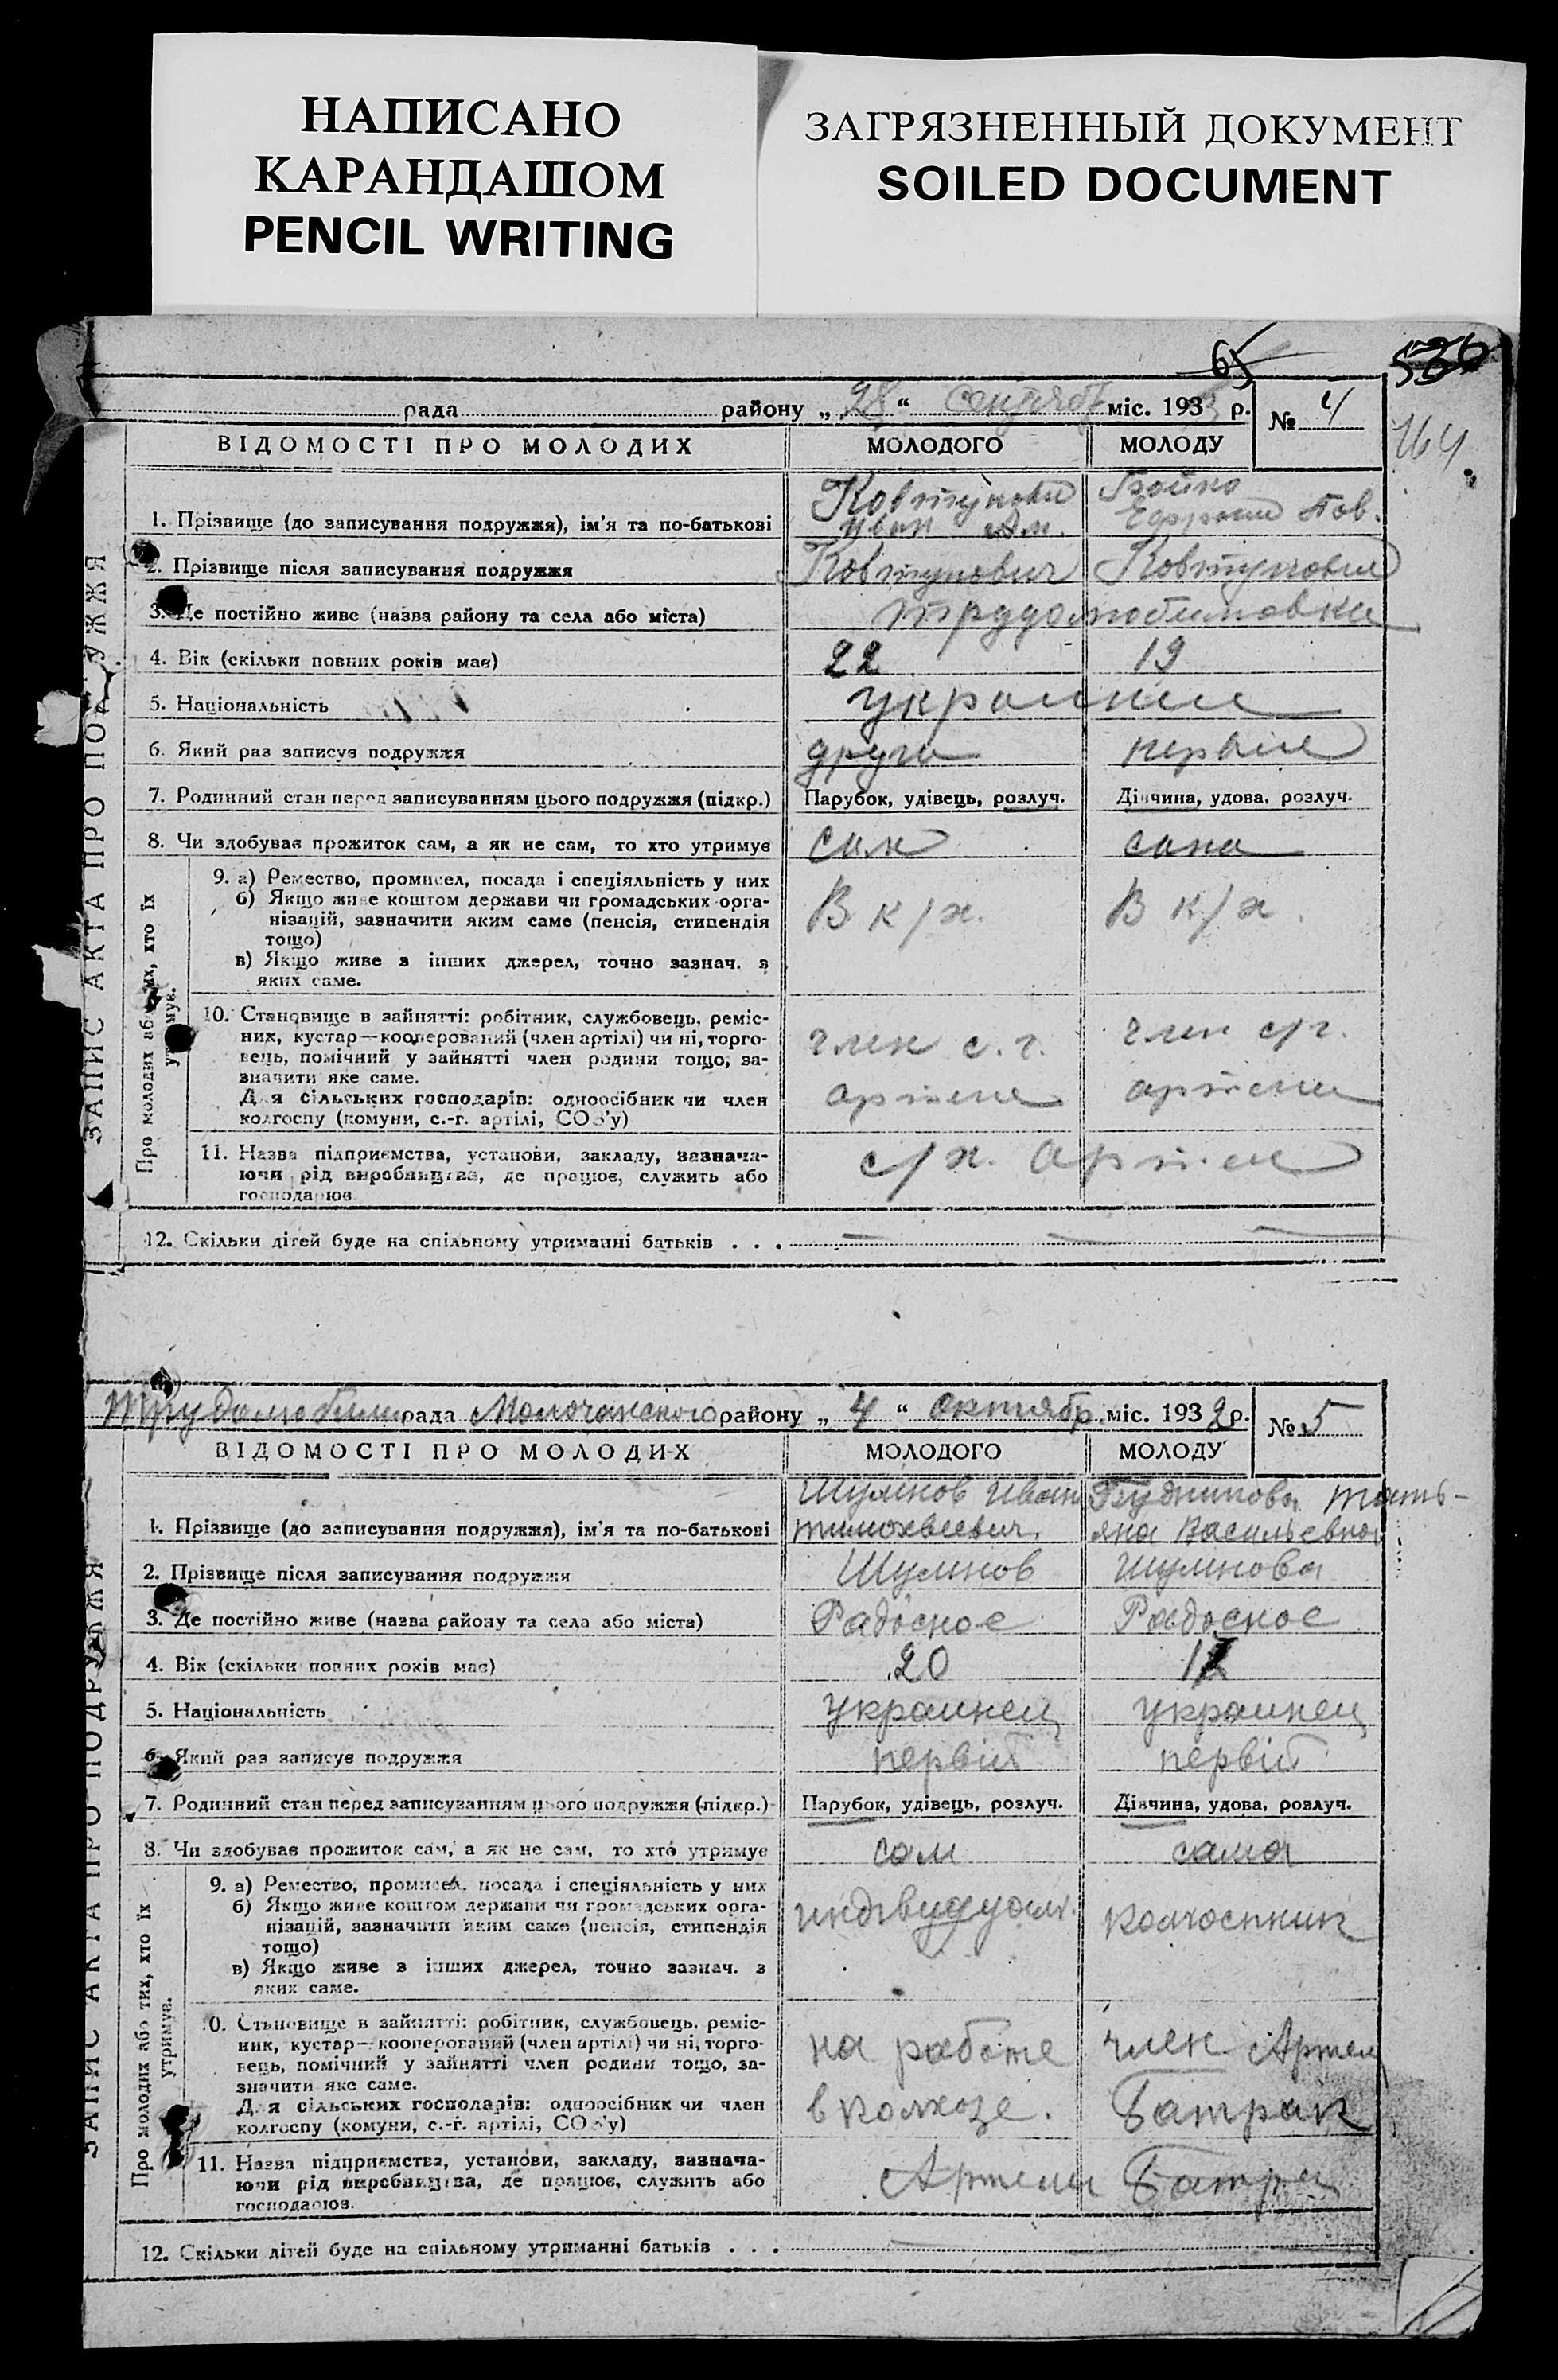 НАПИСАНО
КАРАНДАШОМ
PENCIL WRITING
ЗАГРЯЗНЕННЫЙ ДОКУМЕНТ
SOILED DOCUMENT
65
536
164
рада району „ 28 “ міс. 193 р. № 4
ВІДОМОСТІ ПРО МОЛОДИХ МОЛОДОГО МОЛОДУ
1. Прізвище (до записування подружжя), ім'я та по-батькові Иван Ам. Бойко Пав.
2. Прізвище після записування подружжя Ковтунович
3. Де постійно живе (назва району та села або міста) Трудолюбимовка
4. Вік (скільки повних років має) 22 19
5. Національність украинец
6. Який раз записує подружжя други первый
7. Родинний стан перед записуванням цього подружжя (підкр.) Парубок, удівець, розлуч. Дівчина, удова, розлуч.
8. Чи здобував прожиток сам, а як не сам, то хто утримує сам сама
9. а) Ремество, промисел, посада і спеціяльність у них
б) Якщо живе коштом держави чи громадських орга-
нізацій, зазначити яким саме (пенсія, стипендія
тощо)
В к/х. В к/х.
в) Якщо живе з інших джерел, точно зазнач. з
яких саме.
10. Становище в зайнятті: робітник, службовець, реміс-
ник, кустар—кооперований (член артілі) чи ні, торго-
вець, помічний у зайнятті член родини тощо, за-
значити яке саме.
Для сільських господарів: одноосібник чи член
колгоспу (комуни, с.-г. артілі, СОЗ'у)
член с. г. член с/г.
артели артели
11. Назва підприємства, установи, закладу, зазнача-
ючи рід виробництва, де працює, служить або
господарює
с/х. артел
12. Скільки дітей буде на спільному утриманні батьків . . .
ЗАПИС АКТА ПРО ПОДРУЖЖЯ
Про молодих або тих, хто їх
утримує.
Трудолюбим рада Молочанского району „ 4 “ октябр. міс. 193 2 р. № 5
ВІДОМОСТІ ПРО МОЛОДИХ МОЛОДОГО МОЛОДУ
Шумнов Иван Будникова Тать-
1. Прізвище (до записування подружжя), ім'я та по-батькові Тимохвеевич, яна Васильевна
2. Прізвище після записування подружжя Шумнов Шумнова
3. Де постійно живе (назва району та села або міста) Радосное Радосное
4. Вік (скільки повних років має) 20
5. Національність украинец украинец
6. Який раз записує подружжя первій первій
7. Родинний стан перед записуванням цього подружжя (підкр.) Парубок, удівець, розлуч. Дівчина, удова, розлуч.
8. Чи здобував прожиток сам, а як не сам, то хто утримує сам сама
9. а) Ремество, промисел, посада і спеціяльність у них
б) Якщо живе коштом держави чи громадських орга-
нізацій, зазначити яким саме (пенсія, стипендія
тощо)
индивидуал. колгоспник
в) Якщо живе з інших джерел, точно зазнач. з
яких саме.
10. Становище в зайнятті: робітник, службовець, реміс-
ник, кустар—кооперований (член артілі) чи ні, торго-
вець, помічний у зайнятті член родини тощо, за-
значити яке саме.
Для сільських господарів: одноосібник чи член
колгоспу (комуни, с.-г. артілі, СОЗ'у)
на работе член Артели
в колхозе. Батрак
11. Назва підприємства, установи, закладу, зазнача-
ючи рід виробництва, де працює, служить або
господарює.
Артели Батрак
12. Скільки дітей буде на спільному утриманні батьків . . .
ЗАПИС АКТА ПРО ПОДРУЖЖЯ
Про молодих або тих, хто їх
утримує.